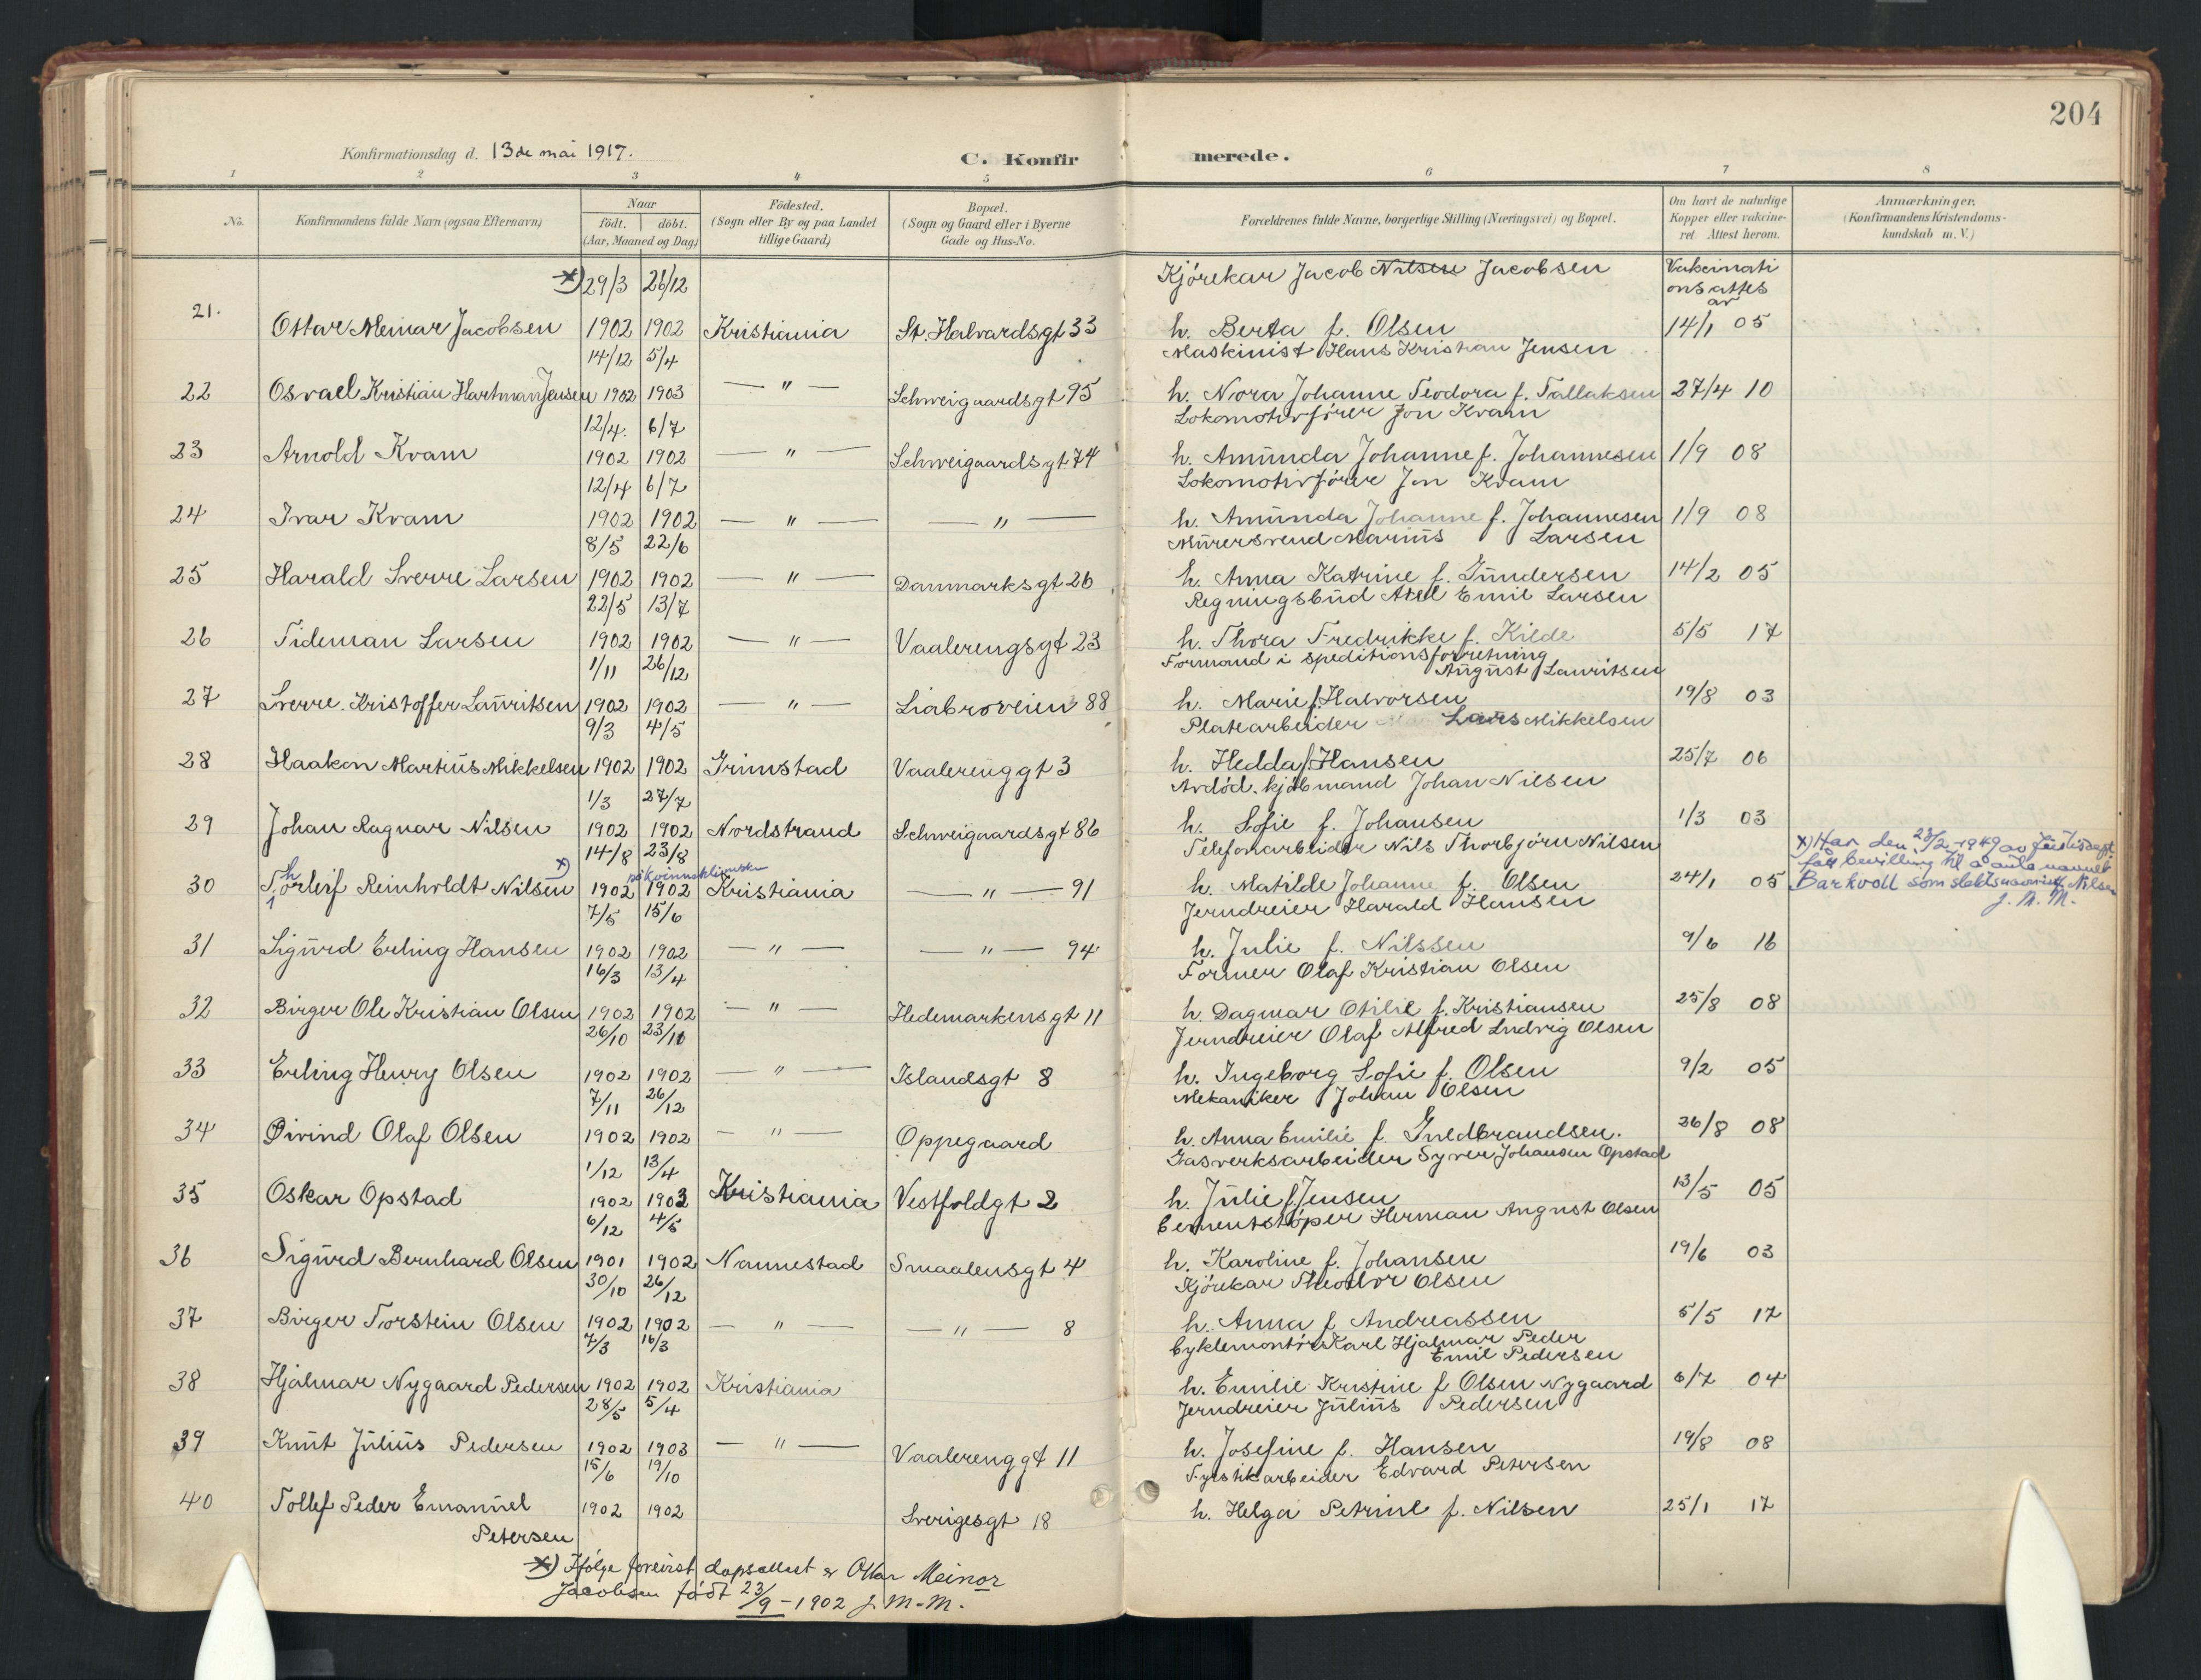 204
Konfirmationsdag d. 13de mai 1917.
C. Konfirmerede.
1 2 3 4 5 6 7 8
No. Konfirmandens fulde Navn (ogsaa Efternavn) Naar født. døbt. (Aar, Maaned og Dag) Fødested. (Sogn eller By og paa Landet tillige Gaard) Bopæl. (Sogn og Gaard eller i Byerne Gade og Hus-No. Forældrenes fulde Navne, borgerlige Stilling (Næringsvei) og Bopæl. Om havt de naturlige Kopper eller vakcineret Attest herom. Anmærkninger. (Konfirmandens Kristendomskundskab m. V.)
x) 29/3 26/12 Kjørekar Jacob Nilsen Jacobsen Vakcinationsattes av
21. Ottar Meinar Jacobsen 1902 1902 Kristiania St. Halvardsgt 33 h. Berta f. Olsen 14/1 05
14/12 5/4 Maskinist Hans Kristian Jensen
22 Osvael Kristian Hartman Jensen 1902 1903 — " — Schweigaardsgt 95 h. Nora Johanne Teodora f. Tallaksen 27/4 10
12/4. 6/7 Lokomotivfører Jon Kvam
23 Arnold Kvam 1902 1902 — " — Schweigaardsgt 74 h. Amunda Johanne f. Johannesen 1/9 08
12/4 6/7 Lokomotivfører Jon Kvam
24 Ivar Kvam 1902 1902 — " — — " — h. Amunda Johanne f. Johannesen 1/9 08
8/5 22/6 Murersvend Marius Larsen
25 Harald Sverre Larsen 1902 1902 — " — Danmarksgt 26 h. Anna Katrine f. Gundersen 14/2 05
22/5 13/7 Regningsbud Axel Emil Larsen
26 Tideman Larsen 1902 1902 — " — Vaalerengsgt 23 h. Thora Fredrikke f. Kilde 5/5 17
1/11 26/12 Formand i speditionsforretning August Lauritsen
27 Sverre Kristoffer Lauritsen 1902 1902 — " — Liabroveien 88 h. Marie f. Halvorsen 19/8 03
9/3 4/5 Platearbeider Lars Mikkelsen
28 Haakon Martius Mikkelsen 1902 1902 Grimstad Vaalerenggt 3 h. Hedda f. Hansen 25/7 06
1/3 27/7 Avdød. kjøbmand Johan Nilsen
29 Johan Ragnar Nilsen 1902 1902 Nordstrand Schweigaardsgt 86 h. Sofie f. Johansen 1/3 03
14/8 23/8 Telefonarbeider Nils Thorbjørn Nilsen x) Har den 23/2-1949 av Justisdept
h x) på kvinneklinikken fått bevilling til å anta navnet
30 Torleif Reinholdt Nilsen 1902 1902 Kristiania — " — 91 h. Matilde Johanne f. Olsen 24/1 05 Barkvoll som slektsnavn Nilsen
J. M. M.
7/5 15/6 Jerndreier Harald Hansen
31 Sigurd Erling Hansen 1902 1902 — " — — " — 94 h. Julie f. Nilssen 9/6 16
16/3 13/4 Former Olaf Kristian Olsen
32 Birger Ole Kristian Olsen 1902 1902 — " — Hedemarkensgt 11 h. Dagmar Otilie f. Kristiansen 25/8 08
26/10 23/11 Jerndreier Olaf Alfred Ludvig Olsen
33 Erling Henry Olsen 1902 1902 — " — Islandsgt 8 h. Ingeborg Sofie f. Olsen 9/2 05
7/11 26/12 Mekaniker Johan Olsen
34 Øivind Olaf Olsen 1902 1902 — " — Oppegaard h. Anna Emilie f. Guldbrandsen. 26/8 08
1/12 13/4 Gasverksarbeider Syver Johansen Opstad
35 Oskar Opstad 1902 1903 Kristiania Vestfoldgt 2 h. Julie f. Jensen 13/5 05
6/12 4/5 Cementstøper Herman August Olsen
36 Sigurd Bernhard Olsen 1901 1902 Nannestad Smaalensgt 4 h. Karoline f. Johansen 19/6 03
30/10 26/12 Kjørekar Theodor Olsen
37 Birger Torstein Olsen 1902 1902 — " — — " — 8 h. Anna f. Andreassen 5/5 17
7/3 16/3 Cyklemontør Karl Hjalmar Peder Emil Pedersen
38 Hjalmar Nygaard Pedersen 1902 1902 Kristiania h. Emilie Kristine f. Olsen Nygaard 6/7 04
28/5 5/4 Jerndreier Julius Pedersen
39 Knut Julius Pedersen 1902 1903 — " — Vaalerenggt 11 h. Josefine f. Hansen 19/8 08
15/6 19/10 Fyrstikarbeider Edvard Petersen
40 Tollef Peder Emanuel 1902 1902 Sverigesgt 18 h. Helga Petrine f. Nilsen 25/1 17
Petersen
x) Ifølge forevist dapsattest er Ottar Meinor
Jacobsen født 23/9-1902 J. M. M.